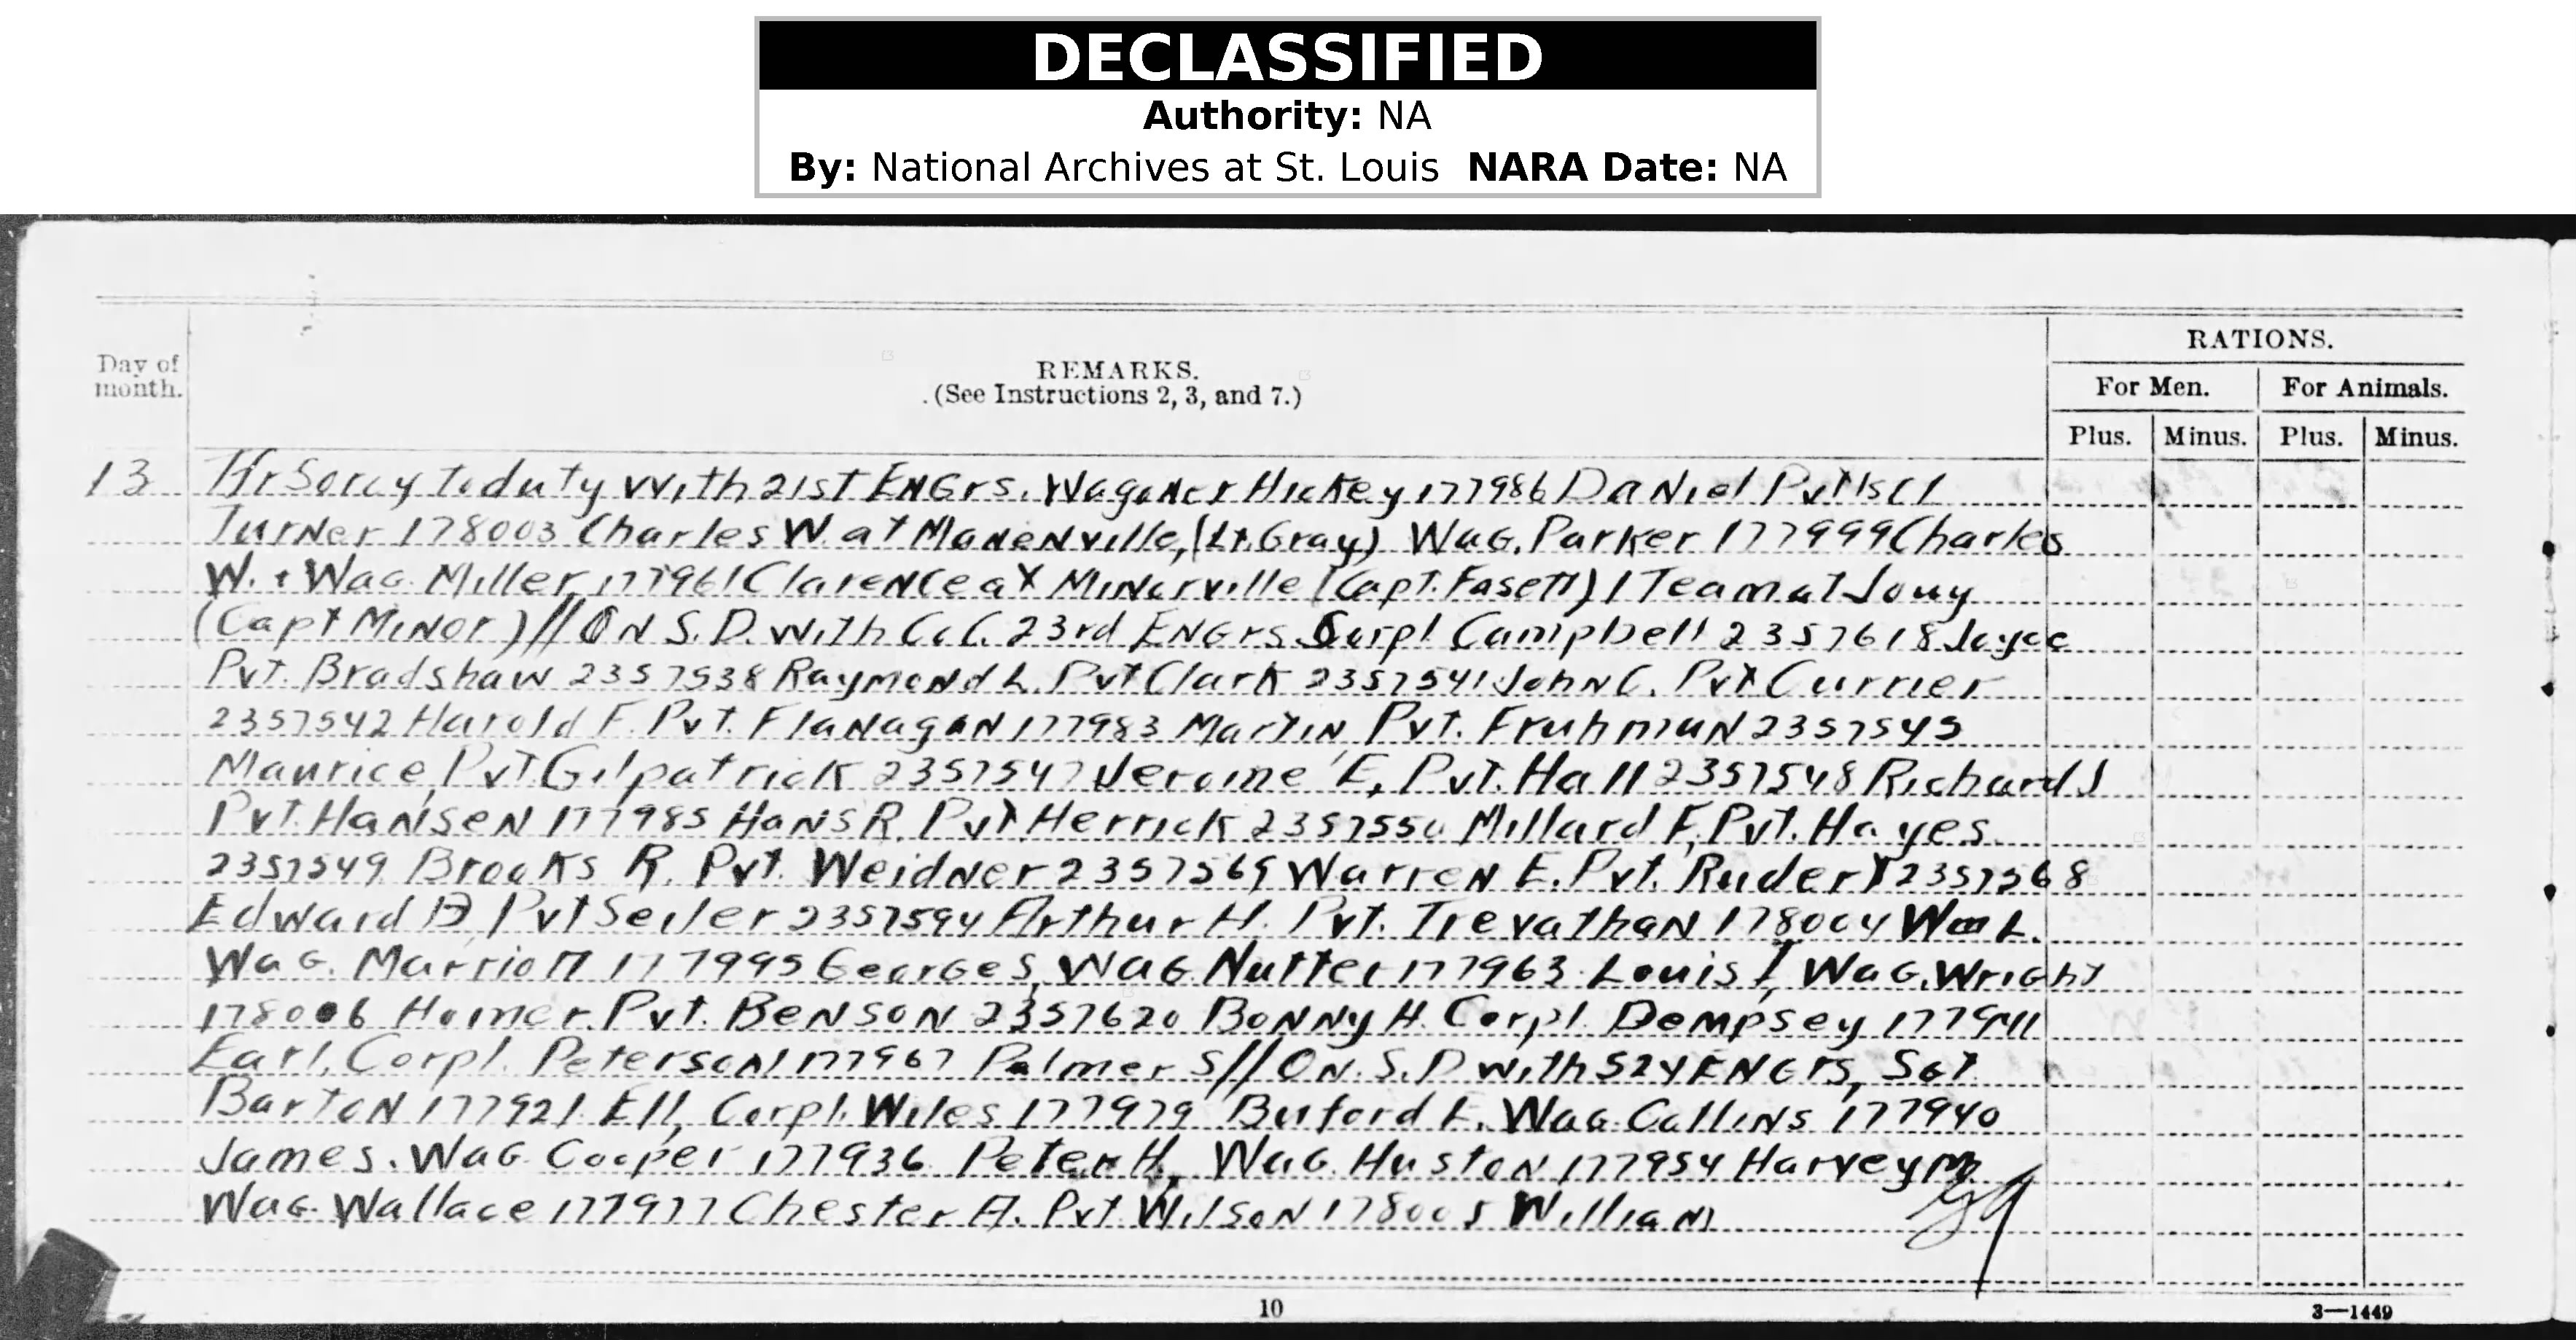 DECLASSIFIED
Authority: NA
By: National Archives at St. Louis NARA Date: NA
Day of month.
REMARKS.
(See Instructions 2, 3, and 7.)
RATIONS.
For Men. For Animals.
Plus. Minus. Plus. Minus.
13 to duty with 21st ENGrs. Wagoner Hickey 177986 Daniel Pvt 1st Cl
Turner 178003 Charles W. at (Lt. Gray) Wag. Parker 177999 Charles
W. + Wag. Miller 177961 Clarence at Minorville (Capt. Fasett) 1 Team at Jouy
(Capt Minor) // ON S. D. with Co. C. 23rd ENGrs. Corpl Campbell 2357618 Joyce
Pvt. Bradshaw 2357538 Raymond L. Pvt Clark 2357541 John C. Pvt Currier
2357542 Harold F. Pvt. Flanagan 177983 Martin Pvt. Fruhman 2357545
Maurice, Pvt Gilpatrick 2357547 Jerome E, Pvt. Hall 2357548 Richard J
Pvt. Hansen 177985 Hans R. Pvt Herrick 2357550 Millard F, Pvt. Hayes
2357549 Brooks R. Pvt. Weidner 2357569 Warren E. Pvt. Rudert 2357568
Edward D, Pvt Seiler 2357594 Arthur H. Pvt. Trevathan 178004 Wm L.
Wag. Marriott 177995 George S, Wag. Nutter 177963 Louis I, Wag. Wright
178006 Homer. Pvt. Benson 2357620 Bonny H. Corpl. Dempsey 177941
Earl, Corpl. Peterson 177967 Palmer S // On. S. D with 524 ENGrs, Sgt
Barton 177921 Eli, Corpl. Wiles 177979 Buford E. Wag. Collins 177940
James. Wag. Cooper 177936 Peter H, Wag. Huston 177954 Harvey M.
Wag. Wallace 177977 Chester A. Pvt. Wilson 178005 William
10
3—1449